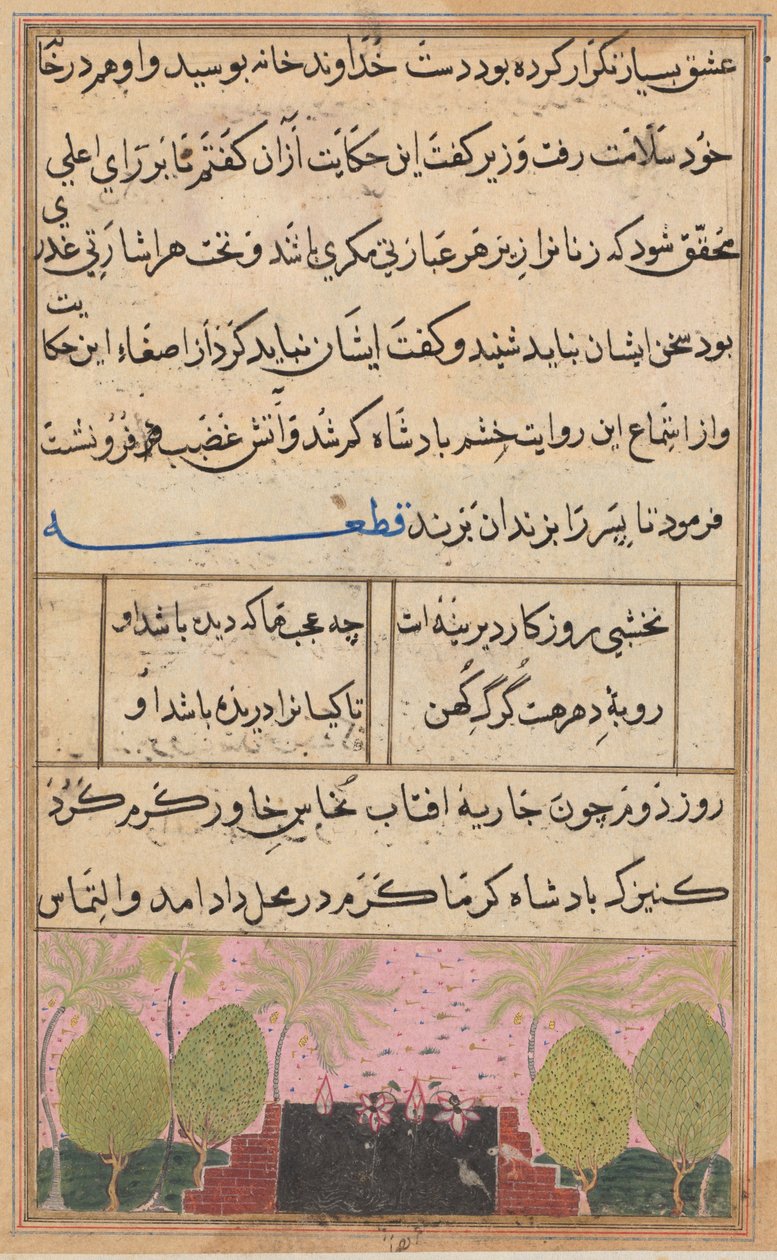 عشق بسیار تکرار کرده بود دست خداوند خانه بوسید و او هم در خانه
خود سلامت رفت وزیر کفت این حکایت ازان کفتم تا بر رای اعلی
محقق شود که زنانرا زیر هر عبارتی مکری باشد و تحت هر اشارتی غدری
بود سخن ایشان نباید شنید و کفت ایشان نباید کرد از اصغاء این حکایت
و از استماع این روایت خشم بادشاه کم شد و آتش غضب فرو نشت
فرمود تا پسر را بزندان بزند قطعه
نخشبی روزکار دیرینه است
چه عجب ها که دیده باشد او
روبهٔ دهر هست گرگ کهن
تا کیانرا دریده باشد او
روز دوم چون جاریهٔ افتاب نخاس خاور کرم کرد
کنیزک بادشاه کرماکرم در محل داد امد و التماس